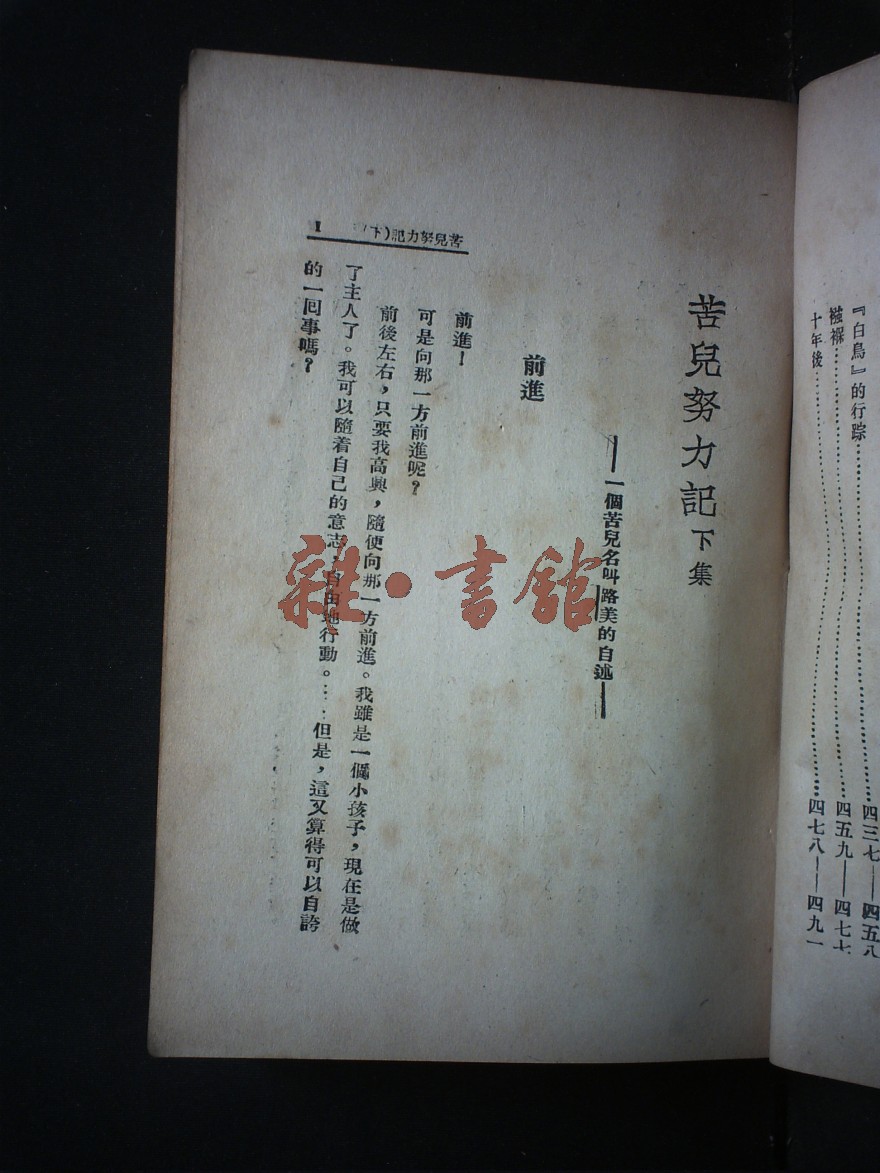 『白鳥』的行踪……四三七——四五八
襁褓……四五九——四七七
十年後……四七八——四九一
苦兒努力記下集
——一個苦兒名叫路美的自述——
前進
前進！
可是向那一方前進呢？
前後左右，只要我高興，隨便向那一方前進。我雖是一個小孩子，現在是做
了主人了。我可以隨着自己的意志，自由地行動。……但是，這又算得可以自誇
的一回事嗎？
苦兒努力記（下）
1
雜·書館